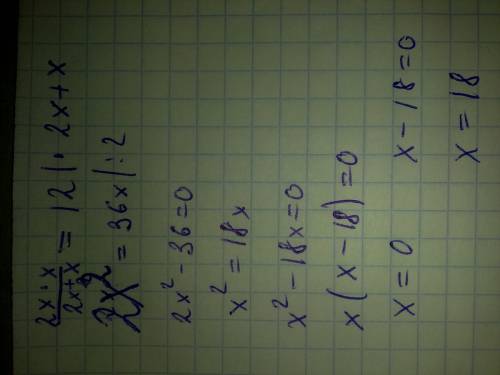 2x·x/2x+x = 12 | · 2x+x
2x² = 36x | : 2
2x² - 36 = 0
x² = 18x
x² - 18x = 0
x(x - 18) = 0
x = 0 x - 18 = 0
x = 18